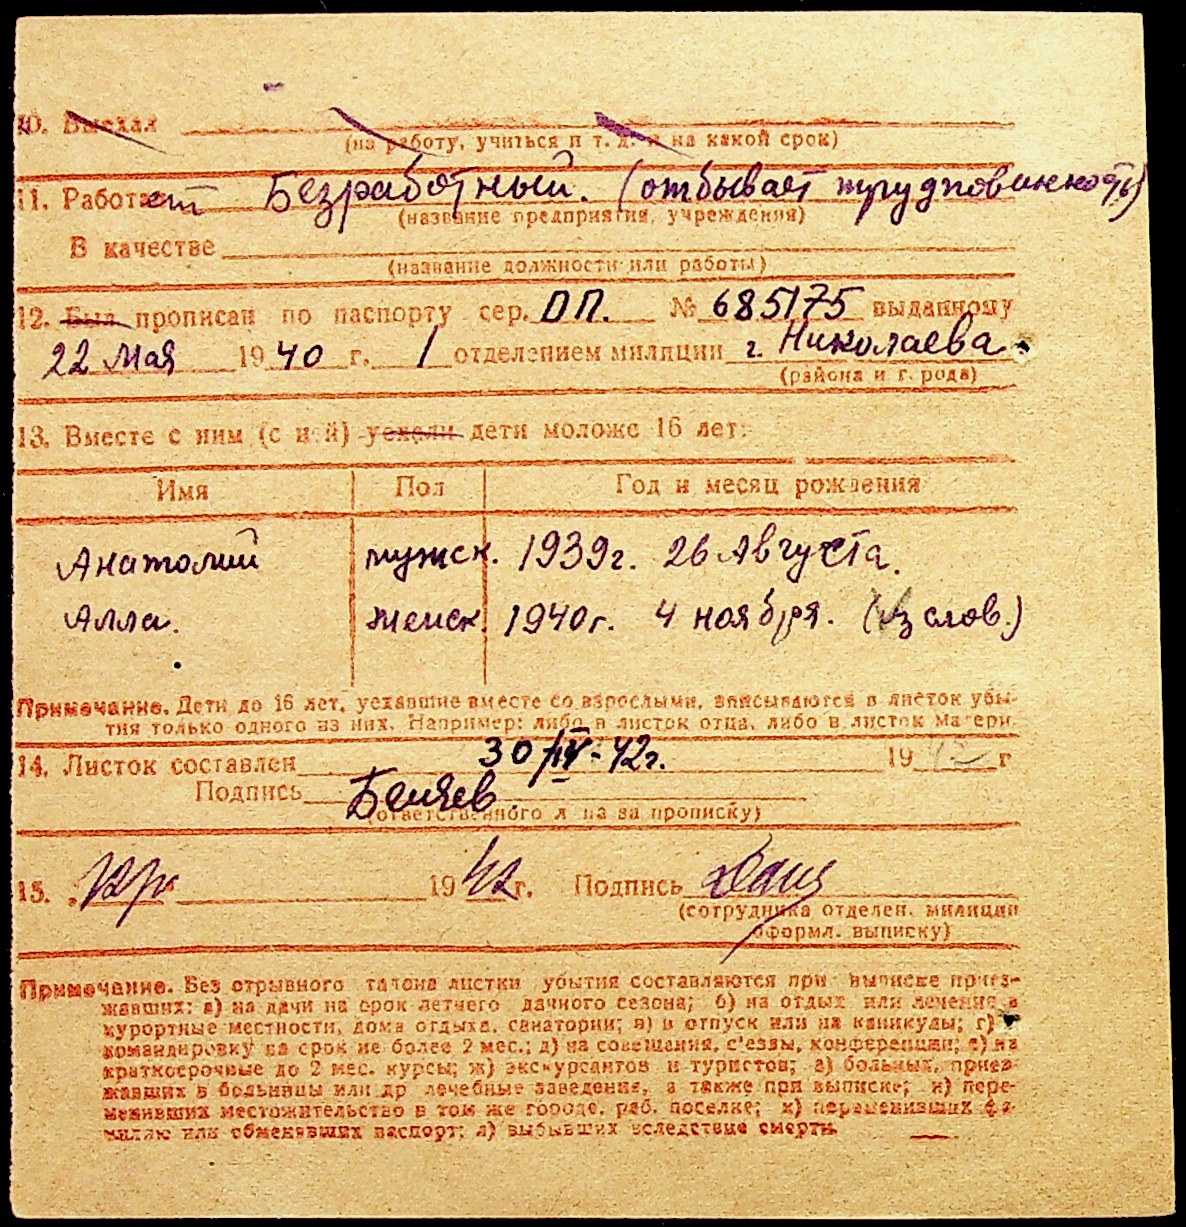 10. Выехал
(на работу, учиться и т. д. и на какой срок)
11. Работает Безработный. (отбывает трудповинность)
(название предприятия, учреждения)
В качестве
(название должности или работы)
12. Был прописан по паспорту сер. ДП. № 685175 выданному
22 Мая 1940 г. 1 отделением милиции г. Николаева
(района и города)
13. Вместе с ним (с ней) уехали дети моложе 16 лет:
Имя Пол Год и месяц рождения
Анатолий мужск. 1939г. 26 Августа.
Алла. женск. 1940г. 4 ноября. (из слов.)
Примечание. Дети до 16 лет, уехавшие вместе со взрослыми, вписываются в листок убы-
тия только одного из них. Например: либо в листок отца, либо в листок матери
14. Листок составлен 30/IV-42г. 1942 г
Подпись Беляев
(ответственного лица за прописку)
15. 1942г. Подпись
(сотрудника отделен. милиции
оформл. выписку)
Примечание. Без отрывного талона листки убытия составляются при выписке приез-
жавших: а) на дачи на срок летнего дачного сезона; б) на отдых или лечение в
курортные местности, дома отдыха, санатории; в) в отпуск или на каникулы; г) в
командировку на срок не более 2 мес.; д) на совещания, с'езды, конференции; е) на
краткосрочные до 2 мес. курсы; ж) экскурсантов и туристов; з) больных, приез-
жавших в больницы или др лечебные заведения, а также при выписке; и) пере-
менивших местожительство в том же городе, раб. поселке; к) переменивших фа-
милию или обменявших паспорт; л) выбывших вследствие смерти.